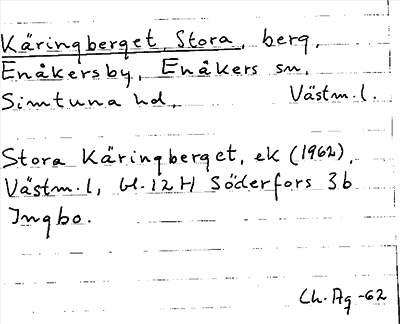 Käringberget, Stora, berg,
Enåkersby, Enåkers sn,
Simtuna hd, Västm. l.
Stora Käringberget, ek (1962),
Västm. l, bl. 12 H Söderfors 3b
Ingbo.
Ch. Ag -62